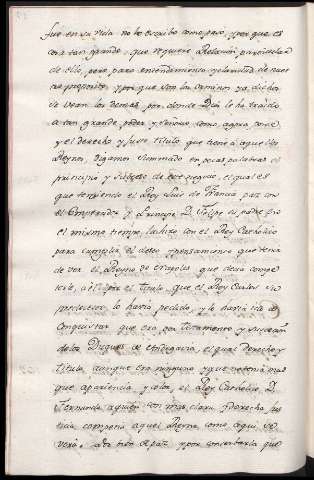 fué en su vida no lo escribo como paso, porque es
cosa tan grande, que requiere Relacion particular
de ello, pero para entendimiento y claridad de nues
tro proposito, y por que con las caminos ya dichos
se vean los demas, por donde Dios le ha traido
a tan grande poder y señorio como agora tiene
y el derecho y justo titulo que tiene a aquellos
Reynos, digamos sumando en pocas palabras el
principio y subceso de este negocio, el qual es
que teniendo el Rey Luis de Francia paz con
el Emperador y Principe D. Felipe su padre por
el mismo tiempo, la hizo con el Rey Catholico
para cumplir el deseo y pensamiento que tenia
de dar el Reyno de Napoles que decia compe
terle, a el por el titulo, que el Rey Carlos su
predecesor lo havia pedido, y lo havia ido a
Conquistar que era por Testamento y sucesion
de los Duques de Andegavia, el qual derecho y
titulo, aunque era ninguno y que no tenia mas
que apariencia y color, el Rey Catholico D.
Fernando a quien con mas claro derecho, jus
ticia competia aquel Reyno como aqui se
verá. Por bien de paz, y por concertarla que